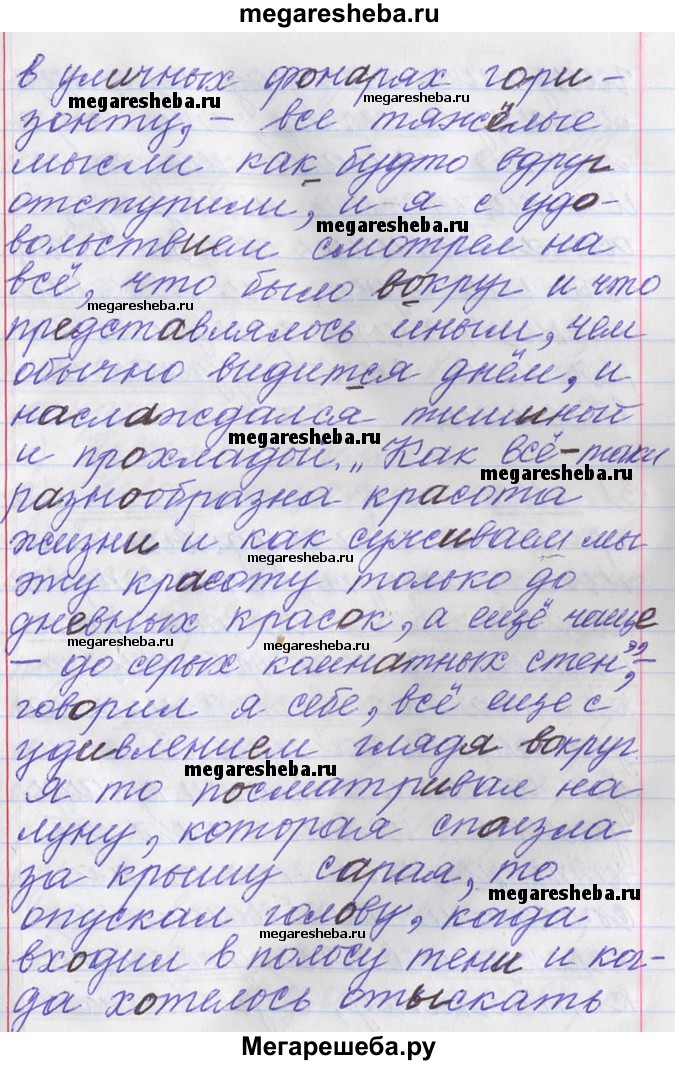 megaresheba.ru
в уличных фонарях гори-
megaresheba.ru
megaresheba.ru
зонту, – все тяжёлые
мысли как будто вдруг
отступили, и я с удо-
megaresheba.ru
вольствием смотрел на
всё, что было вокруг и что
megaresheba.ru
представлялось иным, чем
обычно видится днём, и
наслаждался тишиной
megaresheba.ru
и прохладой. „Как всё-таки
megaresheba.ru
разнообразна красота
жизни и как суживаем мы
megaresheba.ru
эту красоту только до
дневных красок, а ещё чаще
megaresheba.ru
megaresheba.ru
– до серых комнатных стен", –
говорил я себе, всё еще с
удивлением глядя вокруг.
megaresheba.ru
Я то посматривал на
луну, которая сползла
за крышу сарая, то
megaresheba.ru
опускал голову, когда
megaresheba.ru
входил в полосу тени и ког-
да хотелось отыскать
Мегарешеба.ру